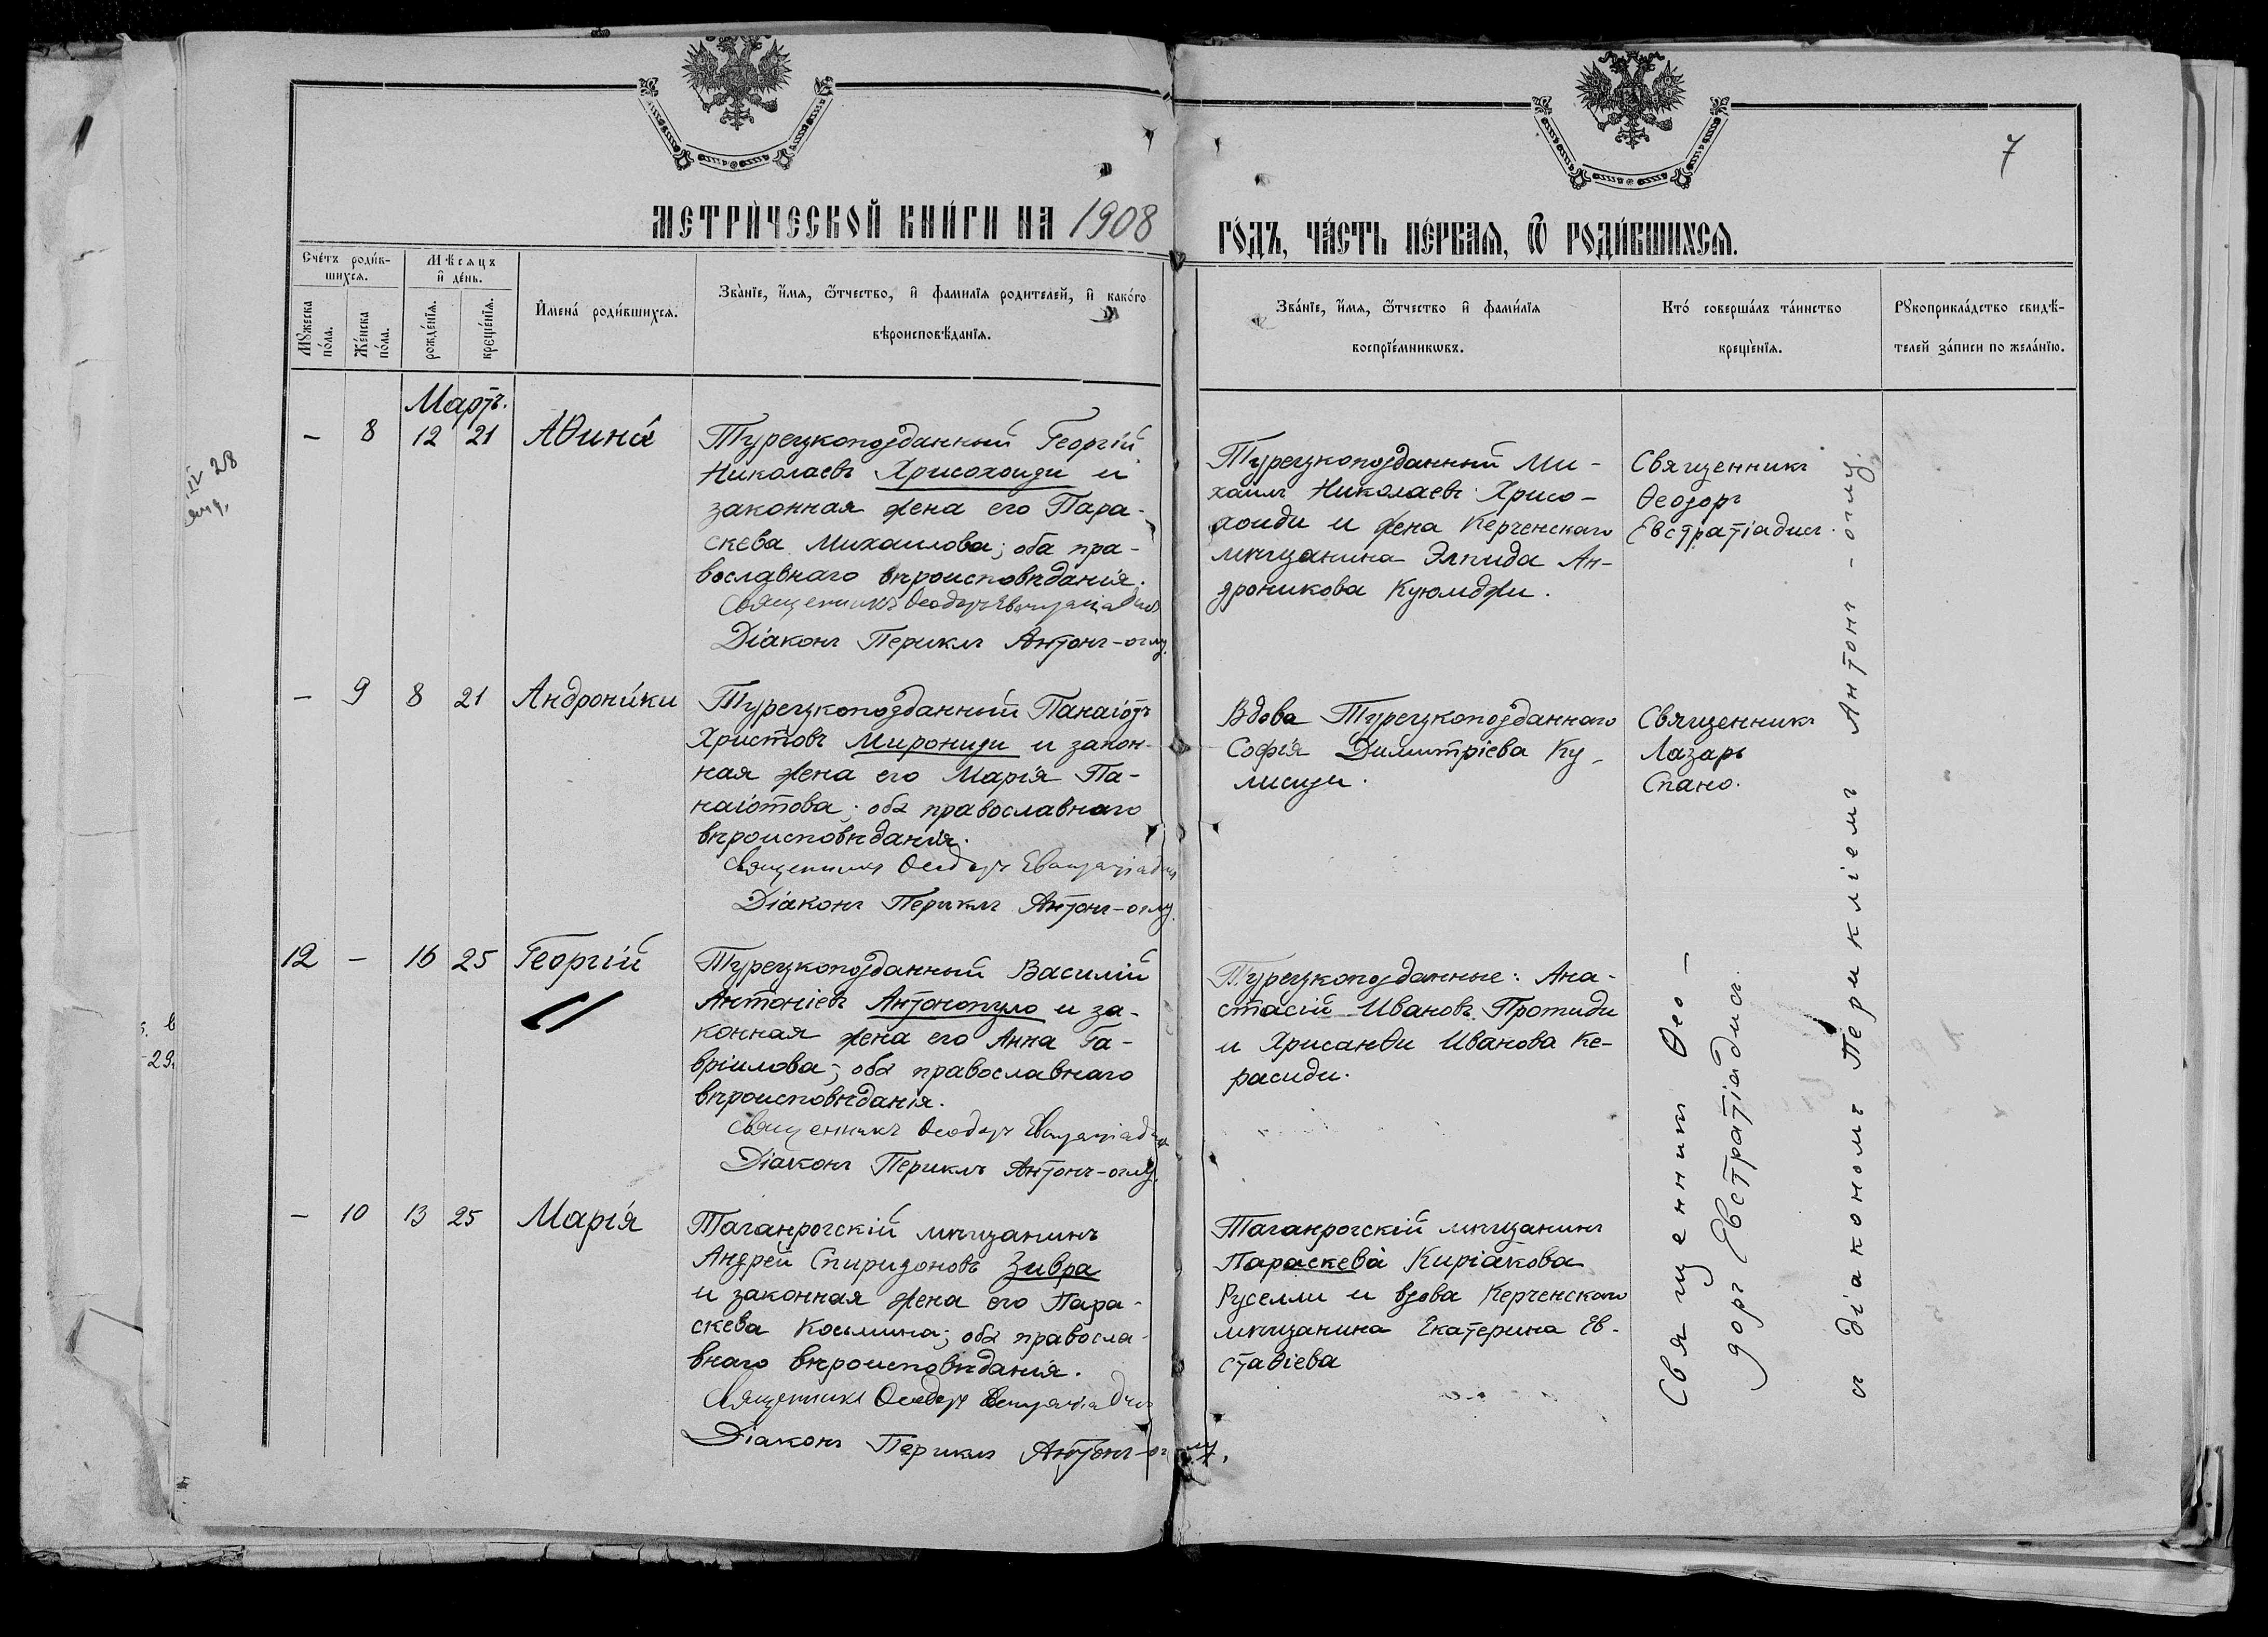 7
МЕТРИ́ЧЕСКОЙ КНИ́ГИ НА 1908 ГО́ДЪ, ЧА́СТЬ ПЕ́РВАЯ, Ѿ РОДИ́ВШИХСЯ.
Сче́тъ роди́в-
шихся.
Мꙋжеска
по́ла.
Же́нска
по́ла.
Мѣсяцъ
и҆ де́нь.
рожде́нїя.
креще́нїя.
И҆мена̀ роди́вшихся.
Зва́нїе, и҆мя, ѻ҆́тчество, и҆ фамилїя родителей, и҆ како́го
вѣроисповѣ́данїя.
Зва́нїе, и҆мя, ѻ҆́тчество и҆ фами́лїя
воспрїе́мникѡвъ.
Кто̀ соверша́лъ та́инство
креще́нїя.
Рꙋкоприкла́дство свидѣ́-
телей за́писи по жела́нїю.
Мартъ.
— 8 12 21 Аѳина́
Турецкоподданный Георгій
Николаевъ Хрисохоиди и
законная жена его Пара-
скева Михаилова; оба пра-
вославнаго вѣроисповѣданія.
Священникъ Ѳеодоръ Евстратіадисъ
Діаконъ Периклъ Антонъ-оглу.
Турецкоподданный Ми-
хаилъ Николаевъ Хрисо-
хоиди и жена Керченскаго
мѣщанина Элпида Ан-
дроникова Куюмджи.
Священникъ
Ѳеодоръ
Евстратіадисъ.
— 9 8 21 Андрони́ки
Турецкоподданный Панаіотъ
Христовъ Мирониди и закон-
ная жена его Марія Па-
наіотова; оба православнаго
вѣроисповѣданія.
Священникъ Ѳеодоръ Евстратіадисъ
Діаконъ Периклъ Антонъ-оглу.
Вдова Турецкоподданнаго
Софія Димитріева Ку-
лисиди.
Священникъ
Лазарь
Спано.
12 — 16 25 Георгій
Турецкоподданный Василій
Антоніевъ Антонопуло и за-
конная жена его Анна Га-
вріилова; оба православнаго
вѣроисповѣданія.
Священникъ Ѳеодоръ Евстратіадисъ
Діаконъ Периклъ Антонъ-оглу.
Турецкоподданные: Ана-
стасій Ивановъ Протиди
и Хрисанѳи Иванова Ке-
расиди.
— 10 13 25 Марія
Таганрогскій мѣщанинъ
Андрей Спиридоновъ Зивра
и законная жена его Пара-
скева Косьмина; оба правосла-
внаго вѣроисповѣданія.
Священникъ Ѳеодоръ Евстратіадисъ
Діаконъ Периклъ Антонъ-оглу.
Таганрогскій мѣщанинъ
Параскева̀ Киріакова
Руселли и вдова Керченскаго
мѣщанина Екатерина Ев-
стаѳіева
Священникъ Ѳео-
доръ Евстратіадисъ
съ діакономъ Перикліемъ Антонъ-оглу.